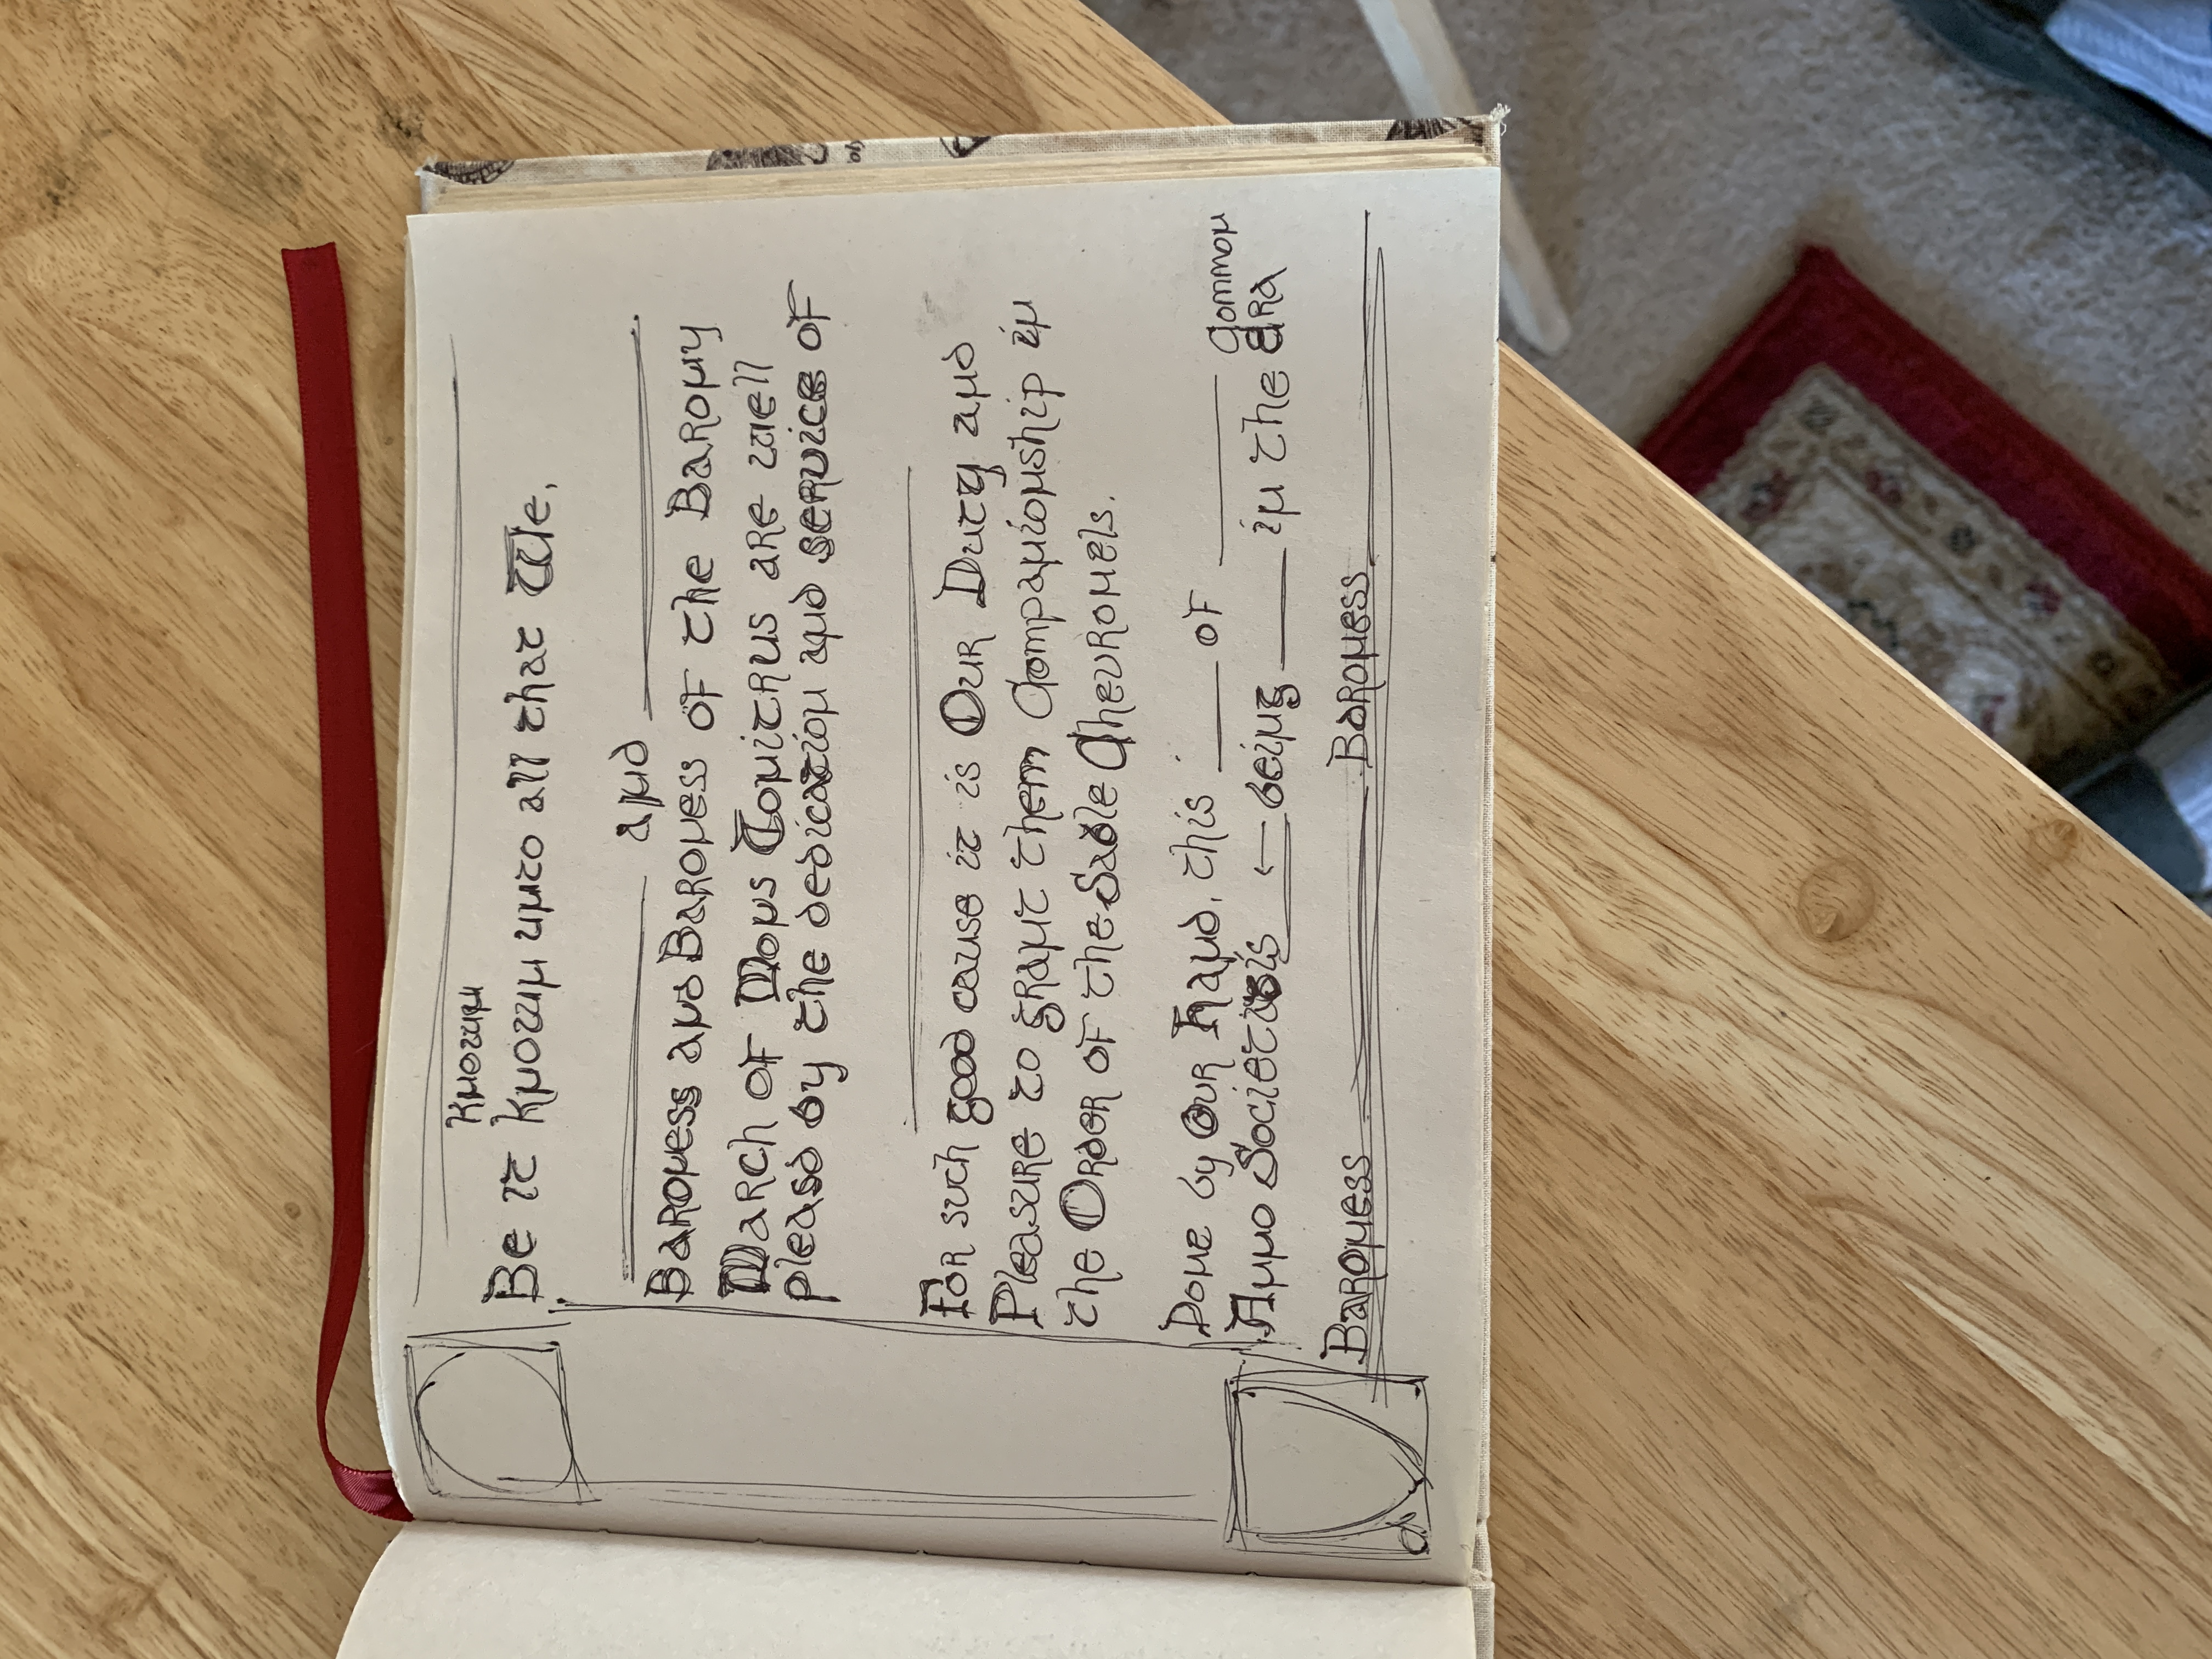 Known
Be it known unto all that We,
____ and ____
Baroness and Baroness of the Barony
March of Mons Tonitrus are well
pleasd by the dedication and service of
____
For such good cause it is Our Duty and
Pleasure to grant them Companionship in
the Order of the Sable Chevronels.
Done by Our Hand, this ____ of ____
Common
Anno Societatis ____ ← being ____ in the Era
Baroness ____ Baroness ____